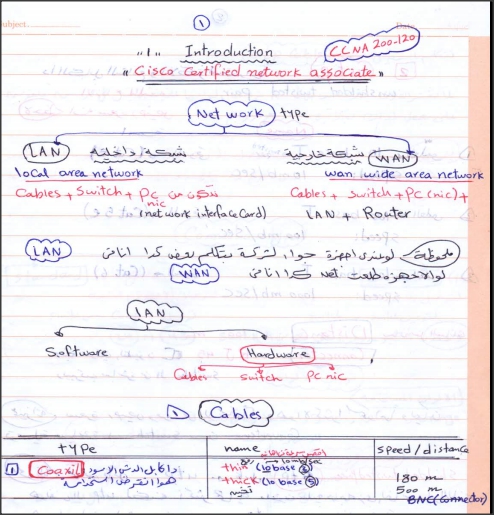 Subject
1
Date
"1" Introduction
CCNA 200-120
"Cisco Certified network associate"
Network type
LAN شبكة داخلية شبكة خارجية WAN
local area network wan wide area network
Cables + Switch + PC تتكون من
nic
(network interface Card)
Cables + switch + PC (nic) +
LAN + Router
ملحوظة لو عندى اجهزة جواا لشركة بتكلم بعض كدا انا فى LAN
لو الاجهزه طلعت net كدا انا فى WAN
LAN
Software Hardware
Cables Switch PC nic
1 Cables
type name speed / distance
10 mb/sec
1 Coaxil دا كابل الدش الاسود thin (10 base 2) 180 m
هدا انقرض استخدامه thick (10 base 5) 500 m
تخين BNC (Connector)